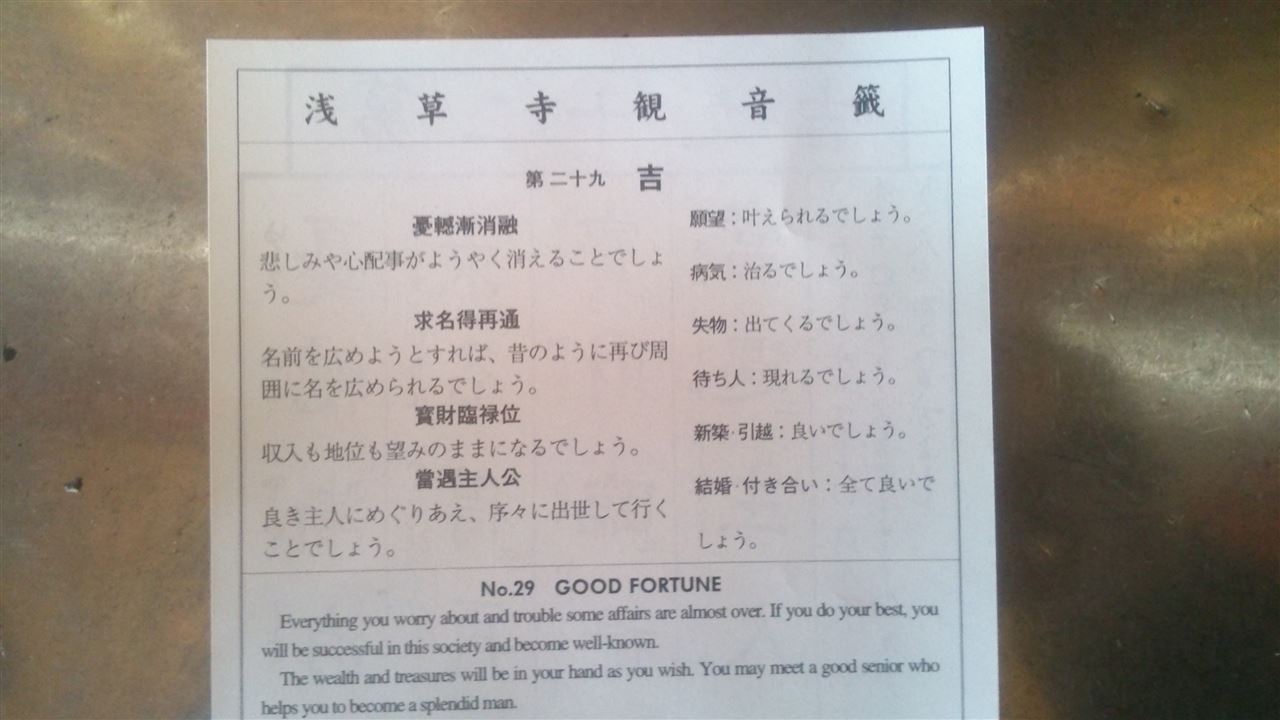 浅草寺観音籤
第二十九 吉
憂轗漸消融
悲しみや心配事がようやく消えることでしょ
う。
求名得再通
名前を広めようとすれば、昔のように再び周
囲に名を広められるでしょう。
寳財臨禄位
収入も地位も望みのままになるでしょう。
當遇主人公
良き主人にめぐりあえ、序々に出世して行く
ことでしょう。
願望：叶えられるでしょう。
病気：治るでしょう。
失物：出てくるでしょう。
待ち人：現れるでしょう。
新築·引越：良いでしょう。
結婚·付き合い：全て良いで
しょう。
No.29 GOOD FORTUNE
Everything you worry about and trouble some affairs are almost over. If you do your best, you
will be successful in this society and become well-known.
The wealth and treasures will be in your hand as you wish. You may meet a good senior who
helps you to become a splendid man.